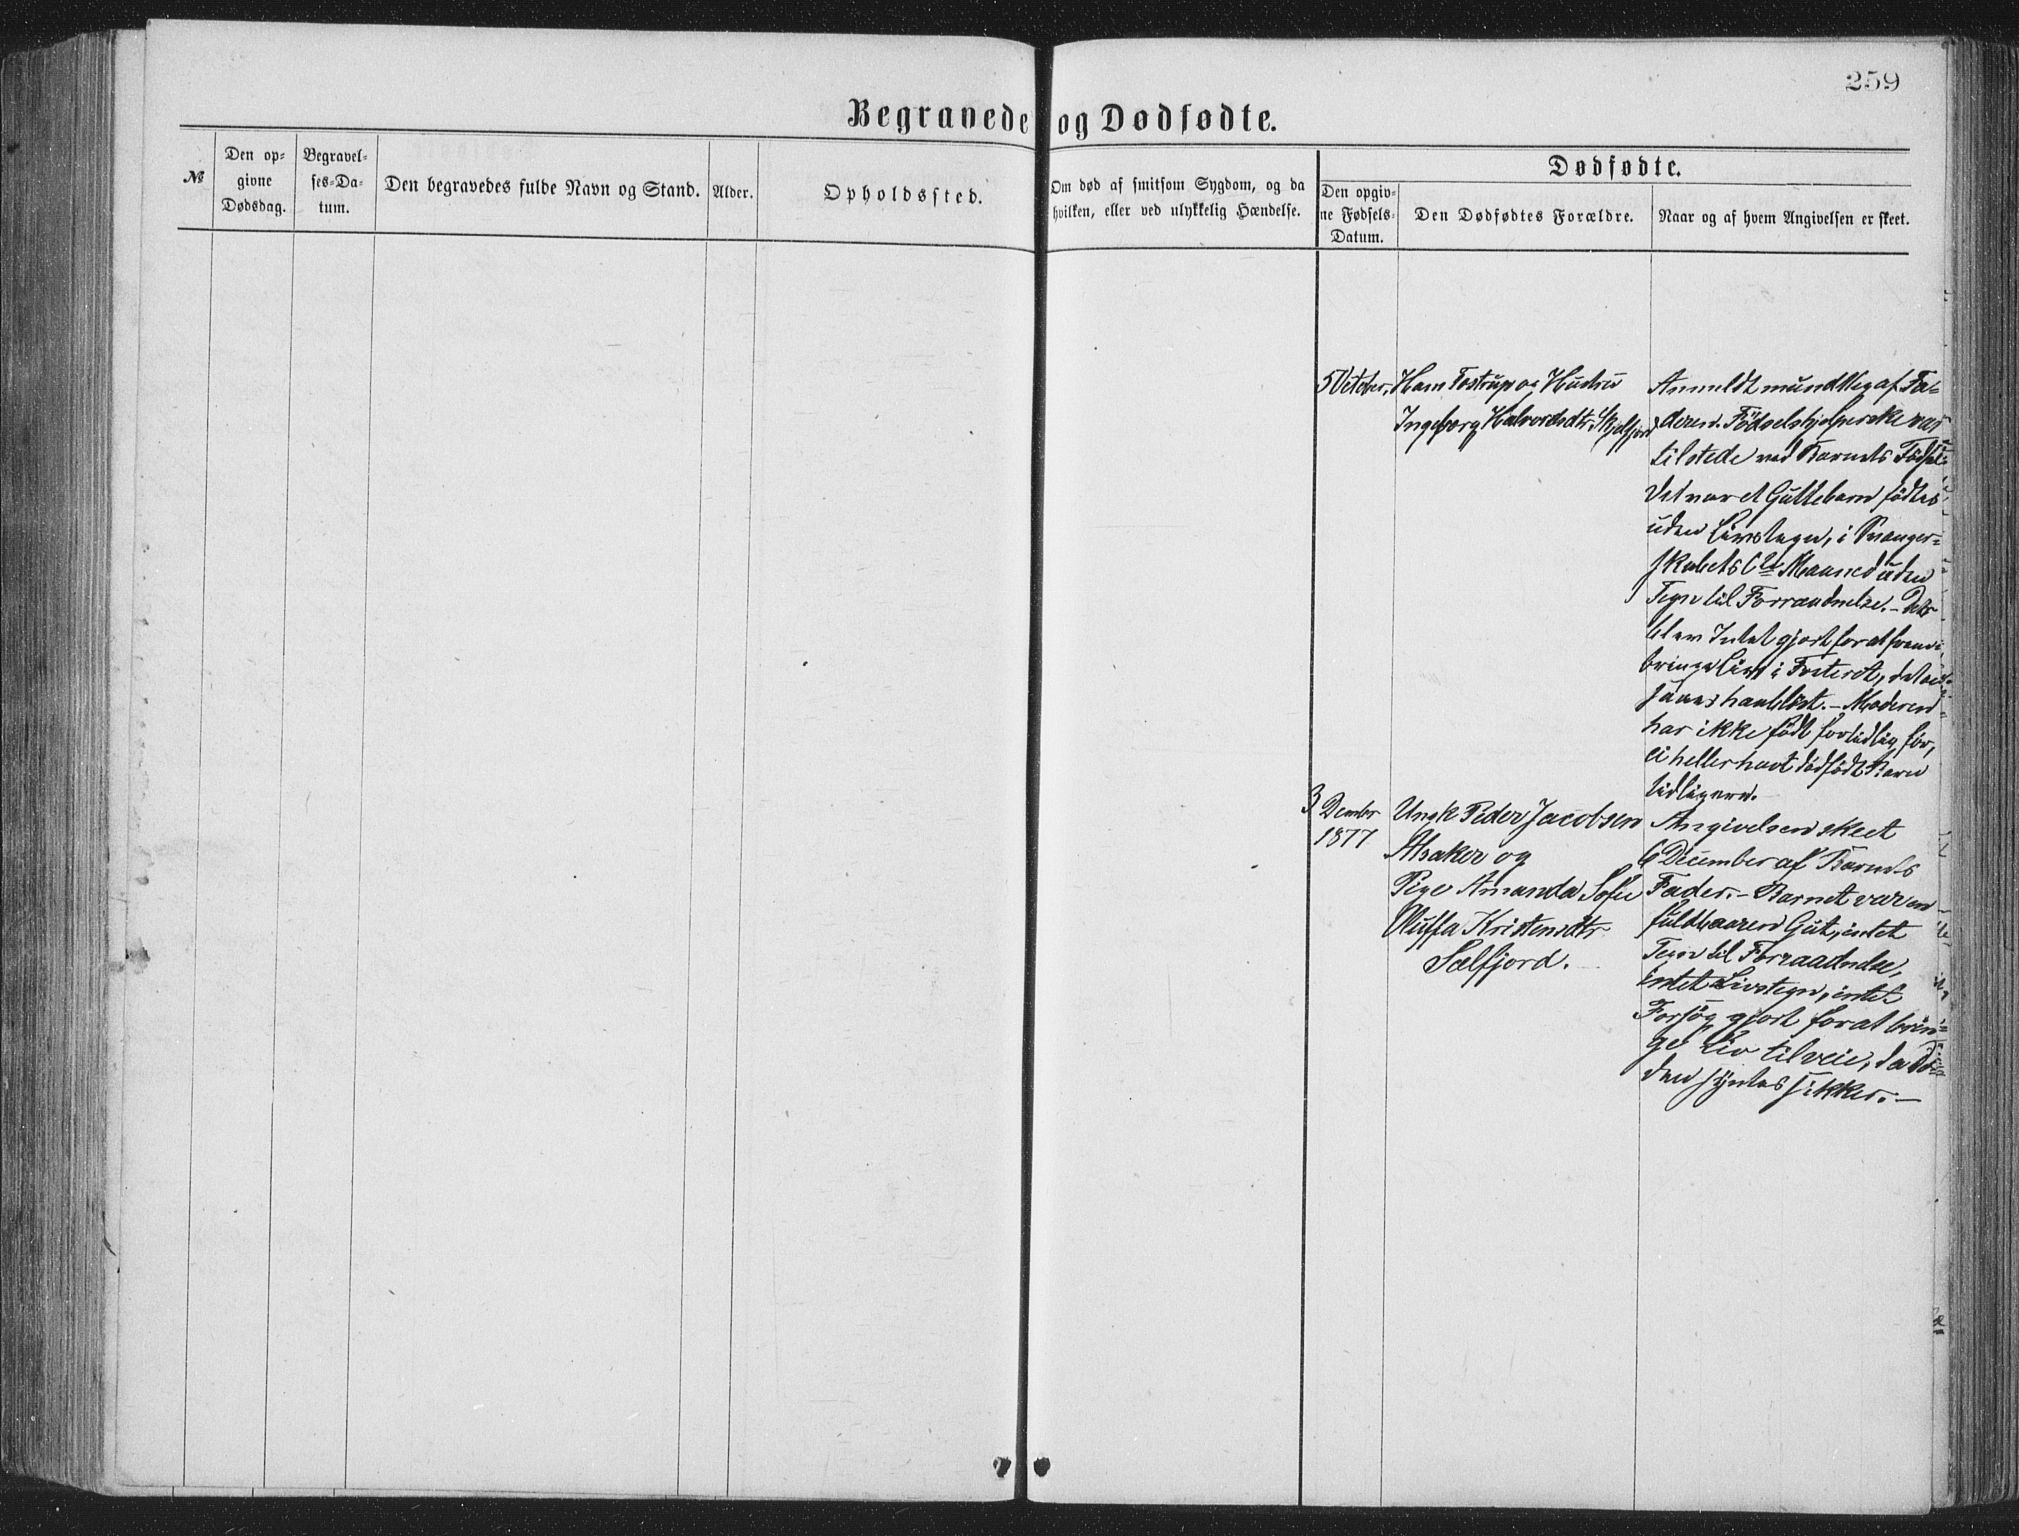 259
Begravede og Dødfødte.
№
Den op-
givne
Dødsdag.
Begravel-
ses-Da-
tum.
Den begravedes fulde Navn og Stand.
Alder.
Opholdssted.
Om død af smitsom Sygdom, og da
hvilken, eller ved ulykkelig Hændelse.
Dødfødte.
Den opgiv-
ne Fødsels-
Datum.
Den Dødfødtes Forældre.
Naar og af hvem Angivelsen er skeet.
5 October,
Hans Tostrup og Hustru
Ingeborg Halvorsdtr Skjelfjord
Anmeldt mundtlig af Fa-
deren. Födselshjelperske var
tilstede ved Barnets Födsel
Det var et Guttebarn födtes
uden Livstegn, i Svanger-
skabets 6te Maaned uden
Tegn til Forraadnelse. -
blev Intet gjort for at frem-
bringe Liv i Fosteret, det
haablöst. - Moderen
har ikke födt fortidlig för,
ei heller havt dödfödt Barn
tidligere.
3 Decembr
1877
Ungk Peder Jacobsen
Alsaker og
Pige Amanda Sofie
Oluffa Kristensdtr
Sælfjord.
Angivelsen skeet
6 December af Barnets
Fader. - Barnet var en
fuldbaaren Gut, intet
Tegn til Forraadnelse,
intet Livstegn, intet
Forsög gjort for at brin-
ge Liv tilveie, da Dö-
den syntes sikker. -